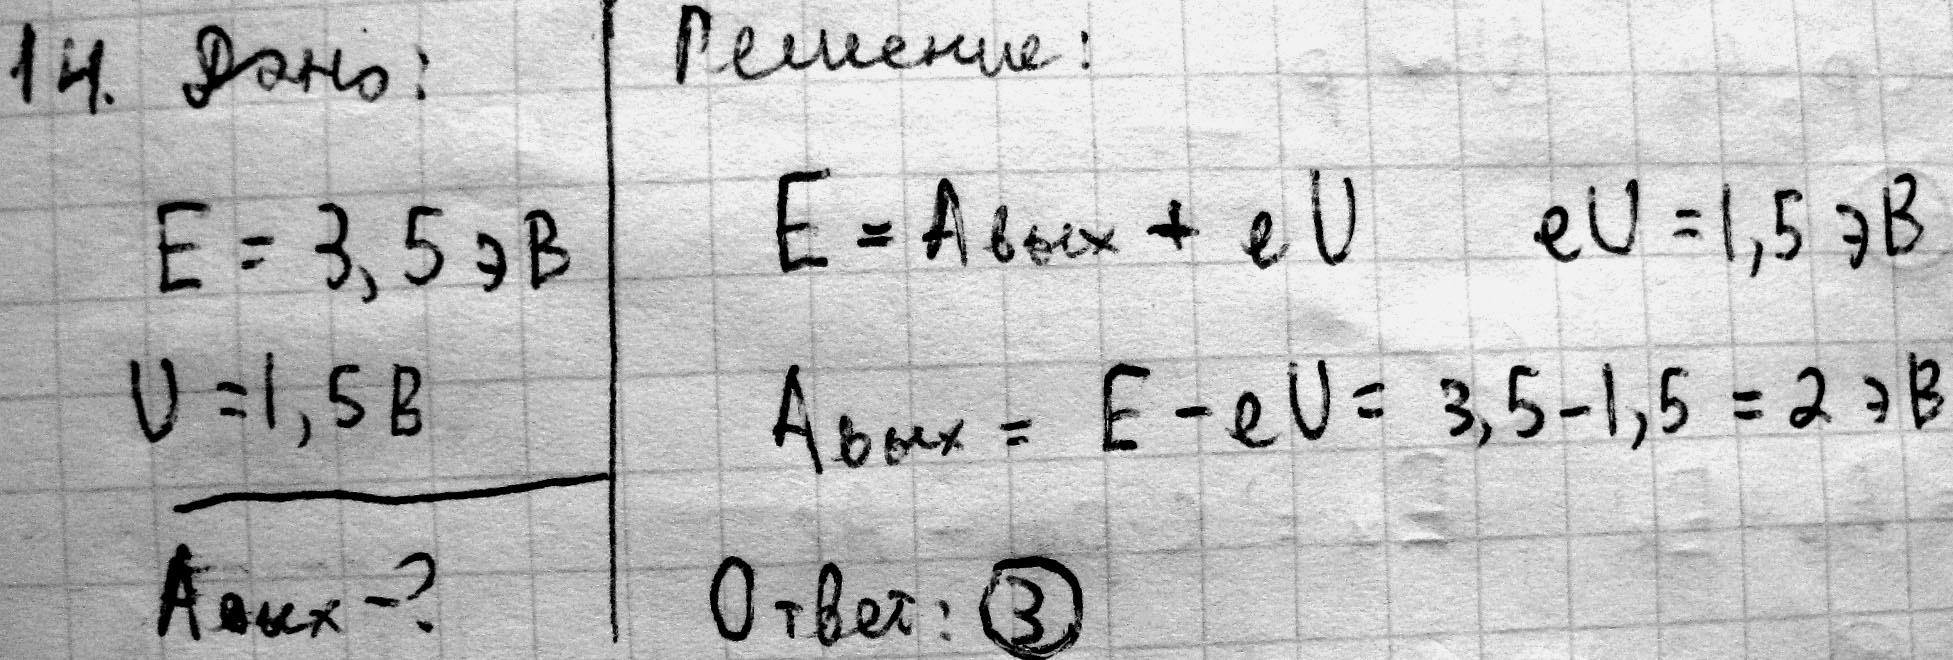 14. Дано:
E = 3,5 эВ
U = 1,5 В
Aвых - ?
Решение:
E = Aвых + eU eU = 1,5 эВ
Aвых = E - eU = 3,5 - 1,5 = 2 эВ
Ответ: 3